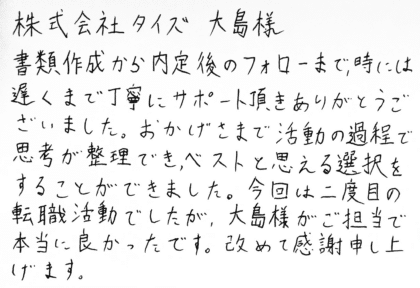 株式会社タイズ 大島様
書類作成から内定後のフォローまで,時には
遅くまで丁寧にサポート頂きありがとうご
ざいました。おかげさまで活動の過程で
思考が整理でき,ベストと思える選択を
することができました。今回は二度目の
転職活動でしたが,大島様がご担当で
本当に良かったです。改めて感謝申し上
げます。